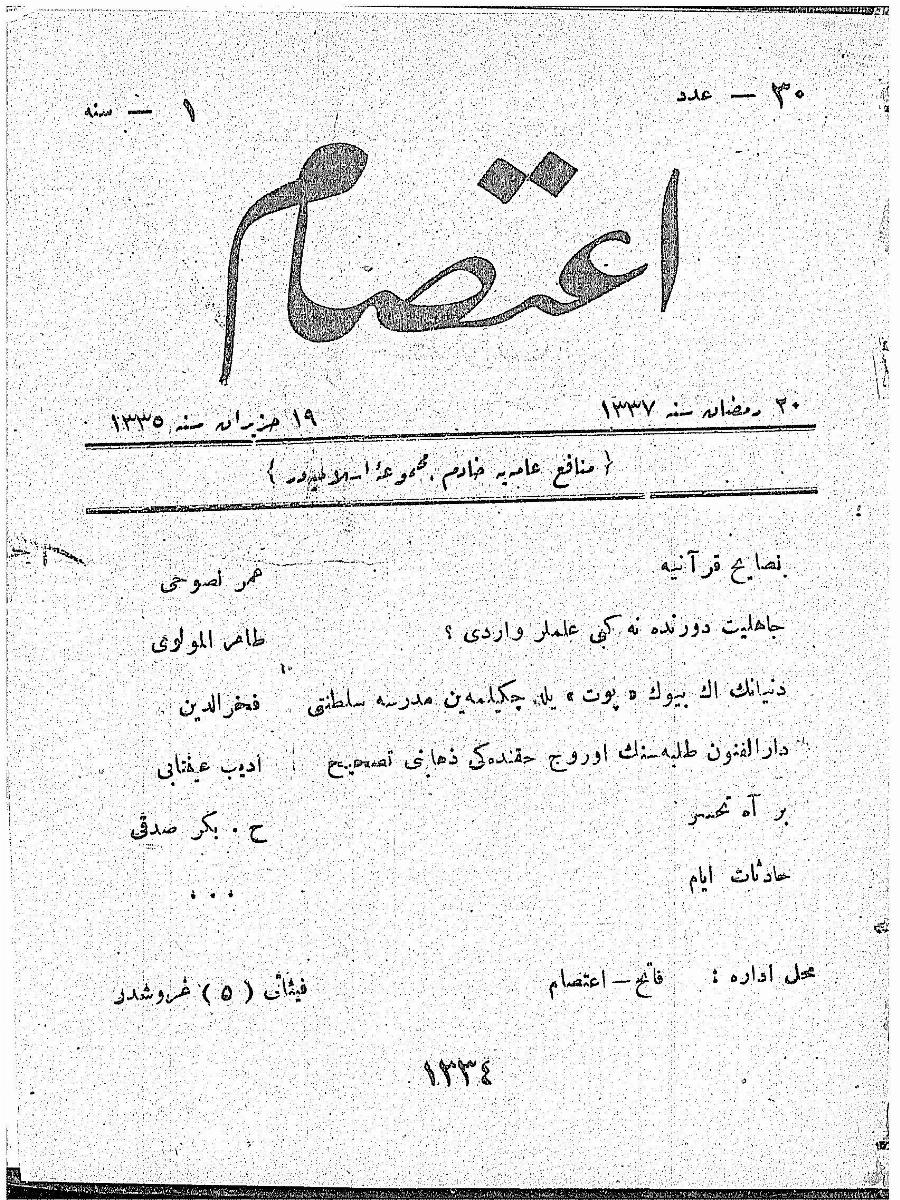 عدد — ٣٠
سنه — ١
اعتصام
٢٠ رمضان سنه ١٣٣٧
١٩ حزيران سنه ١٣٣٥
{ منافع عامه‌يه خادم مجموعهٔ اسلاميه‌در }
نصايح قرآنيه عمر نصوحى
جاهليت دورنده نه كبى علملر واردى ؟ طاهر المولوى
دنيانك اك بيوك « پوت » يله چكيلمه‌ين مدرسه سلطنتى فخرالدين
دارالفنون طلبه‌سنك اوروج حقنده‌كى ذهابنى تصحيح اديب عينتابى
بر آه تحسر ح . بكر صدقى
حادثات ايام . . .
محل اداره : فاتح — اعتصام
فيئاتى ( ٥ ) غروشدر
١٣٣٤